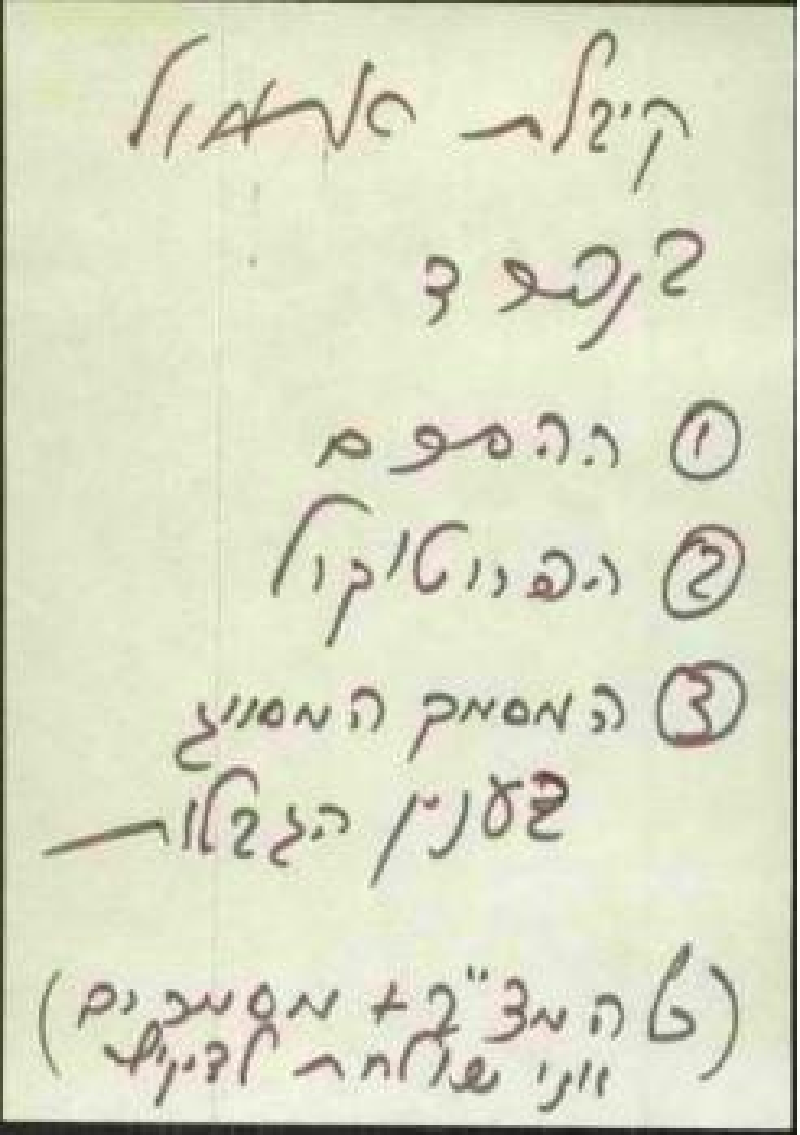 קיבלת אתמול
בנפרד
① ההסכם
② הפרוטוקול
③ המסמך המסווג
בענין הגבלות
(את המצ"ב + מסמכים
אני שולחת לדיקי)